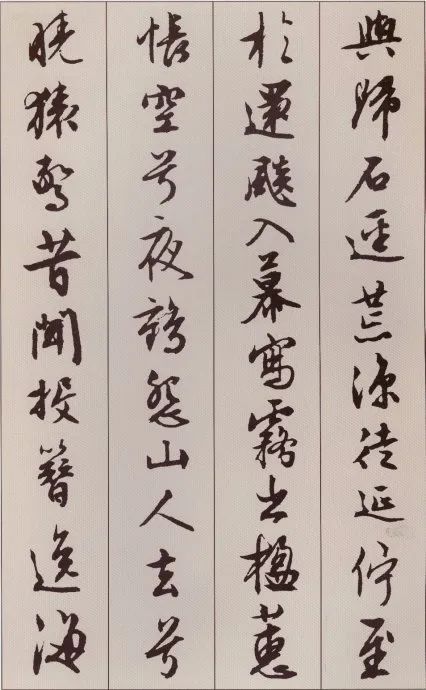 與歸石逕荒涼徒延佇至
於還飈入幕寫霧出楹蕙
帳空兮夜鶴怨山人去兮
曉猿驚昔聞投簪逸海